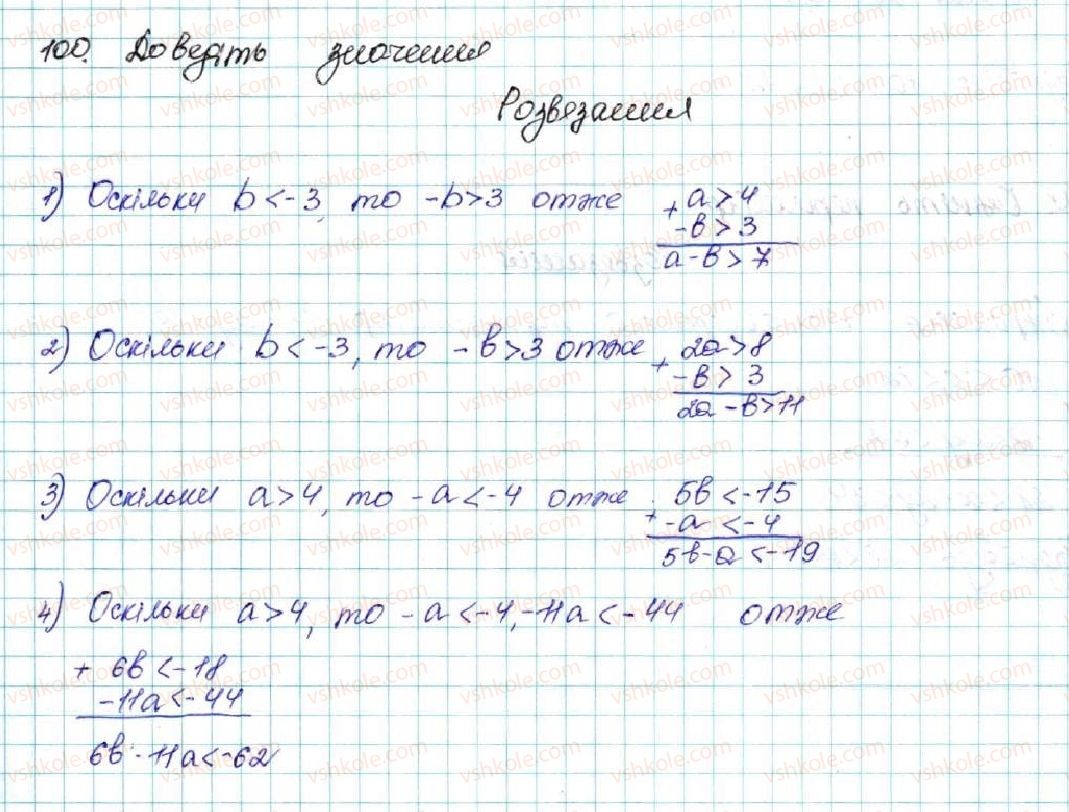 100. Доведіть значення
Розвязання
1) Оскільки b<-3, то -b>3 отже + a>4
-b>3
a-b>7
2) Оскільки b<-3, то -b>3 отже + 2a>8
-b>3
2a-b>11
3) Оскільки a>4, то -a<-4 отже + 5b<-15
-a<-4
5b-a<-19
4) Оскільки a>4, то -a<-4, -11a<-44 отже
+ 6b<-18
-11a<-44
6b-11a<-62